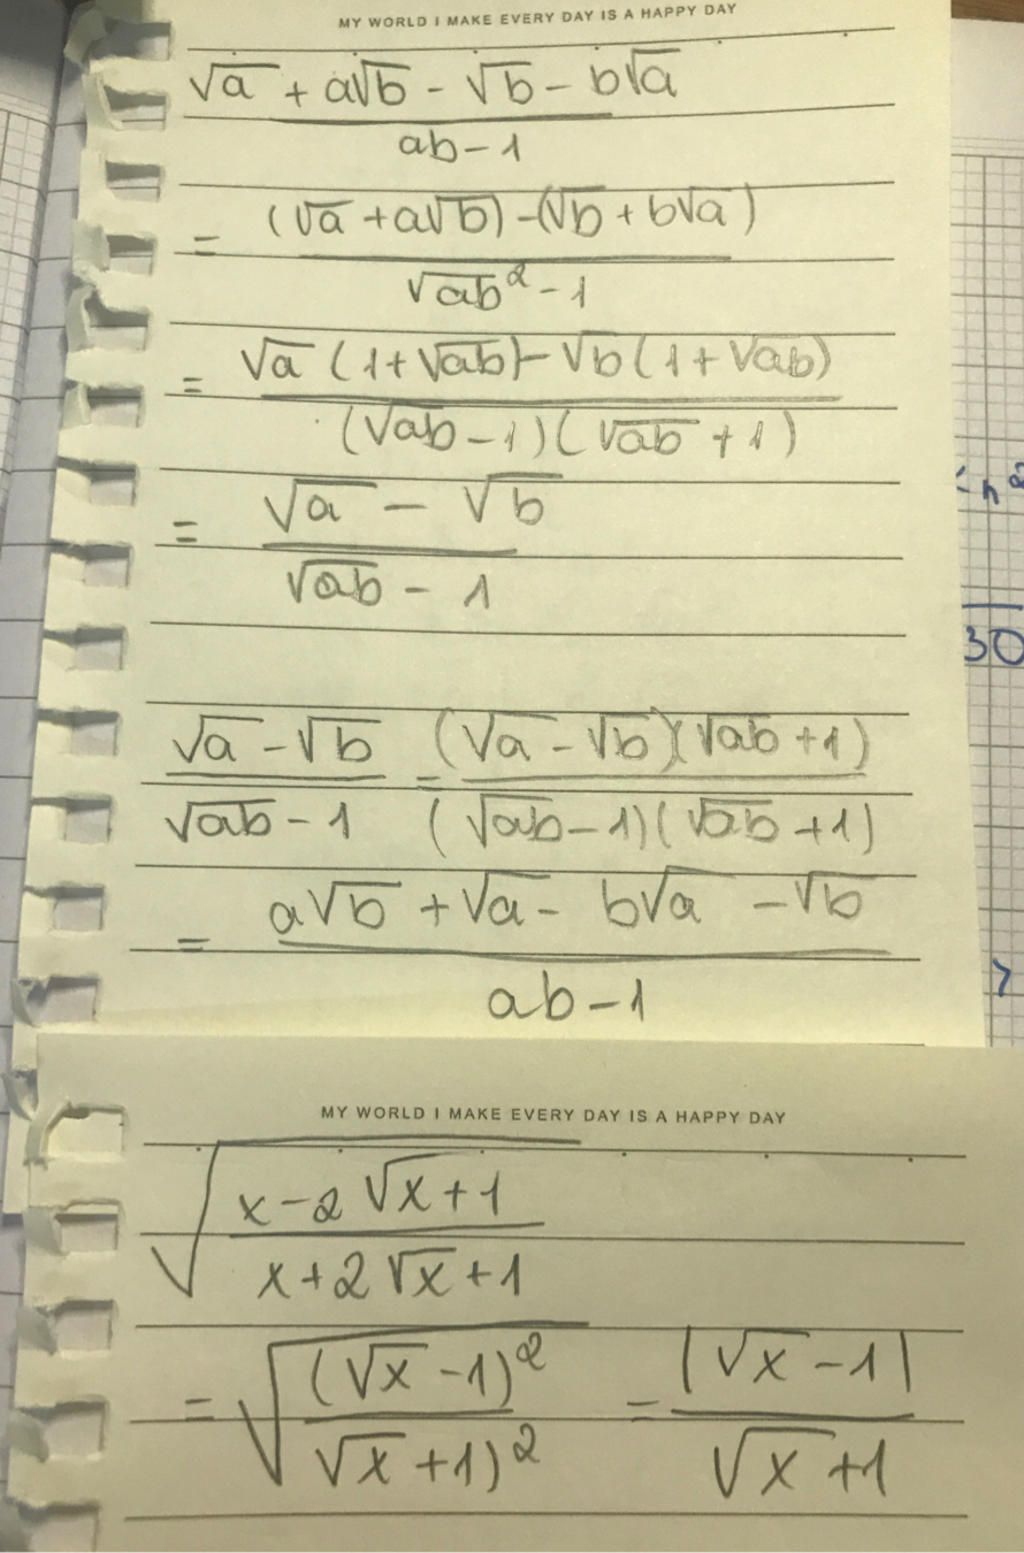 MY WORLD I MAKE EVERY DAY IS A HAPPY DAY
√a + a√b - √b - b√a
ab - 1
= (√a + a√b) - (√b + b√a)
√ab² - 1
= √a (1 + √ab) - √b (1 + √ab)
(√ab - 1)(√ab + 1)
= √a - √b
√ab - 1
30
√a - √b = (√a - √b)(√ab + 1)
√ab - 1 (√ab - 1)(√ab + 1)
= a√b + √a - b√a - √b
ab - 1
MY WORLD I MAKE EVERY DAY IS A HAPPY DAY
√ x - 2√x + 1
x + 2√x + 1
= √ (√x - 1)² = |√x - 1|
√x + 1)² √x + 1